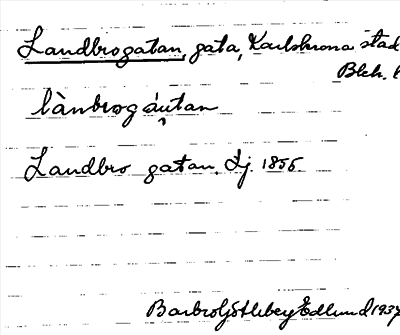 Landbrogatan, gata, Karlskrona stad
Blek. l
lànbrogáutan
Landbro gatan. Lj. 1855
Barbro Götlibey Edlund 1937